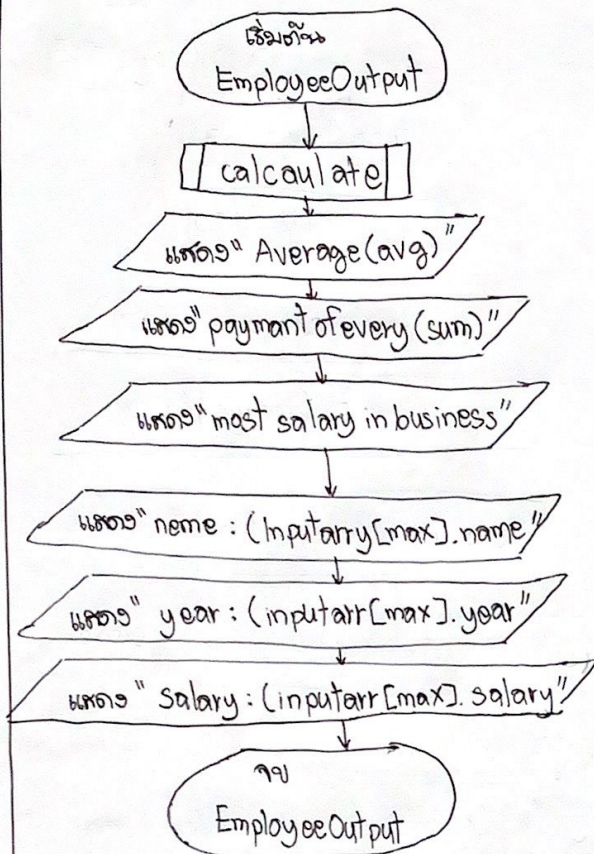 เริ่มต้น
EmployeeOutput
calcaulate
แสดง " Average (avg) "
แสดง " paymant of every (sum) "
แสดง " most salary in business "
แสดง " neme : (Inputarry[max].name "
แสดง " year : (inputarr[max].year "
แสดง " Salary : (inputarr[max].salary "
จบ
EmployeeOutput